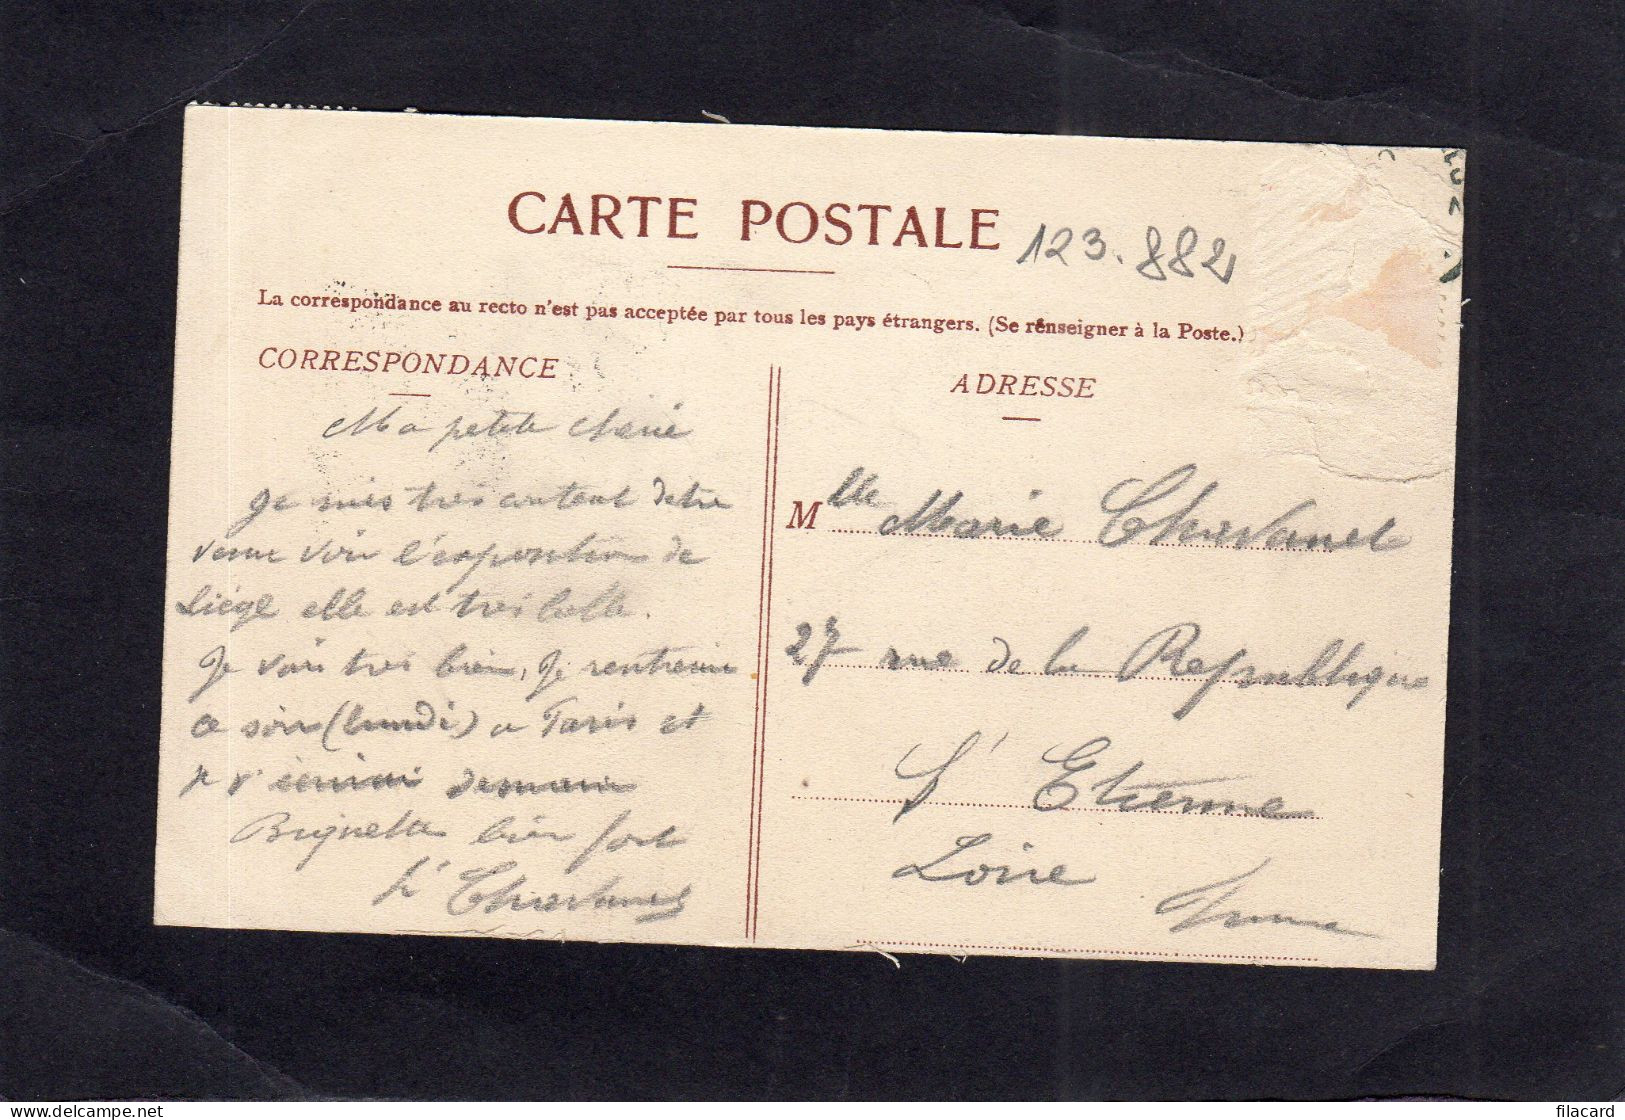 CARTE POSTALE
123.882
La correspondance au recto n'est pas acceptée par tous les pays étrangers. (Se renseigner à la Poste.)
CORRESPONDANCE
Ma petite Marie
Je suis très content detre
venu voir l'exposition de
Liége elle est très belle.
Je vais très bien, Je rentrerai
ce soir (lundi) a Paris et
demain
bien fort
ADRESSE
Mlle Marie Thevanet
27 rue de la Republique
St Etienne
Loire
France
filacard